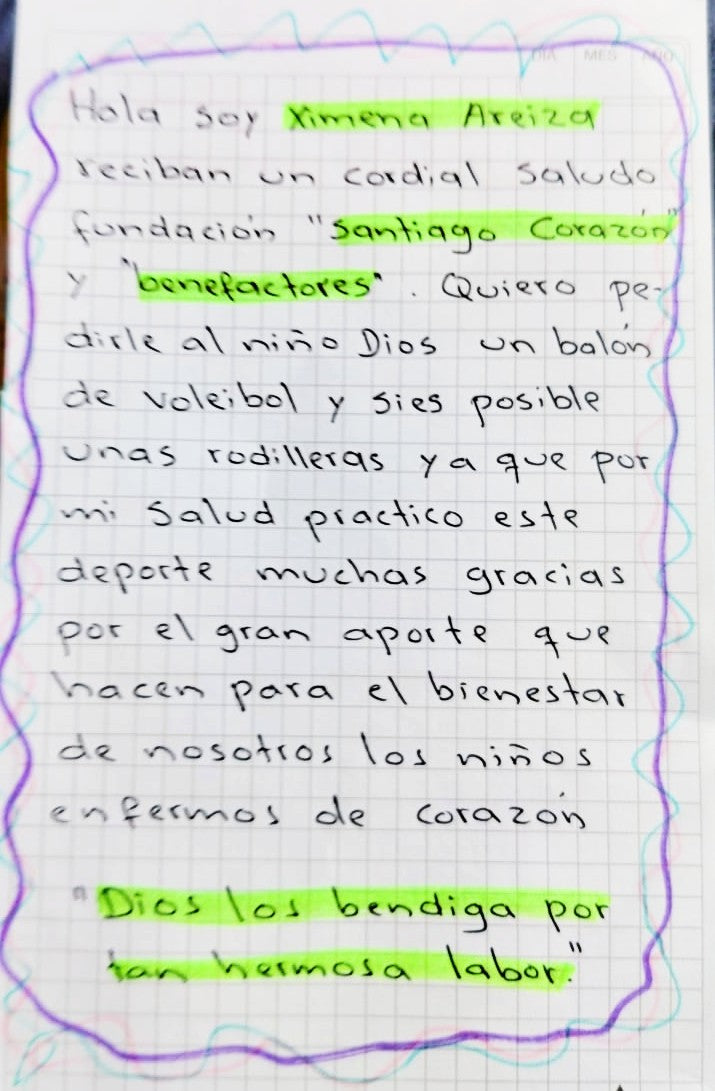 DIA MES AÑO
Hola soy Ximena Areiza
reciban un cordial saludo
fundación "Santiago Corazón"
y "benefactores". Quiero pe-
dirle al niño Dios un balón
de voleibol y sies posible
unas rodilleras ya que por
mi salud practico este
deporte muchas gracias
por el gran aporte que
hacen para el bienestar
de nosotros los niños
enfermos de corazón
"Dios los bendiga por
tan hermosa labor."